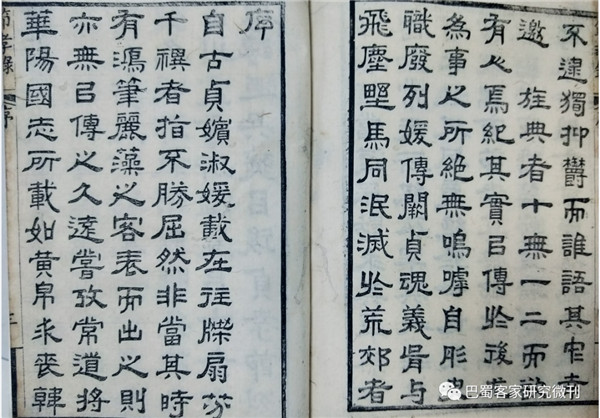 不逮獨抑鬱而誰語其
邀旌典者十無一二而
有心焉紀其實㠯傳於後
為事之所絕無嗚嘑自彤
職廢列媛傳闕貞魂義骨與
飛塵壄馬同泯滅於荒郊者
序
自古貞嬪淑媛載在往牒扇芬
千禩者指不勝屈然非當其時
有鴻筆麗藻之客表而出之則
亦無㠯傳之久遠嘗攷常道將
華陽國志所載如黃帛求喪韓
節孝錄
序
巴蜀客家研究微刊